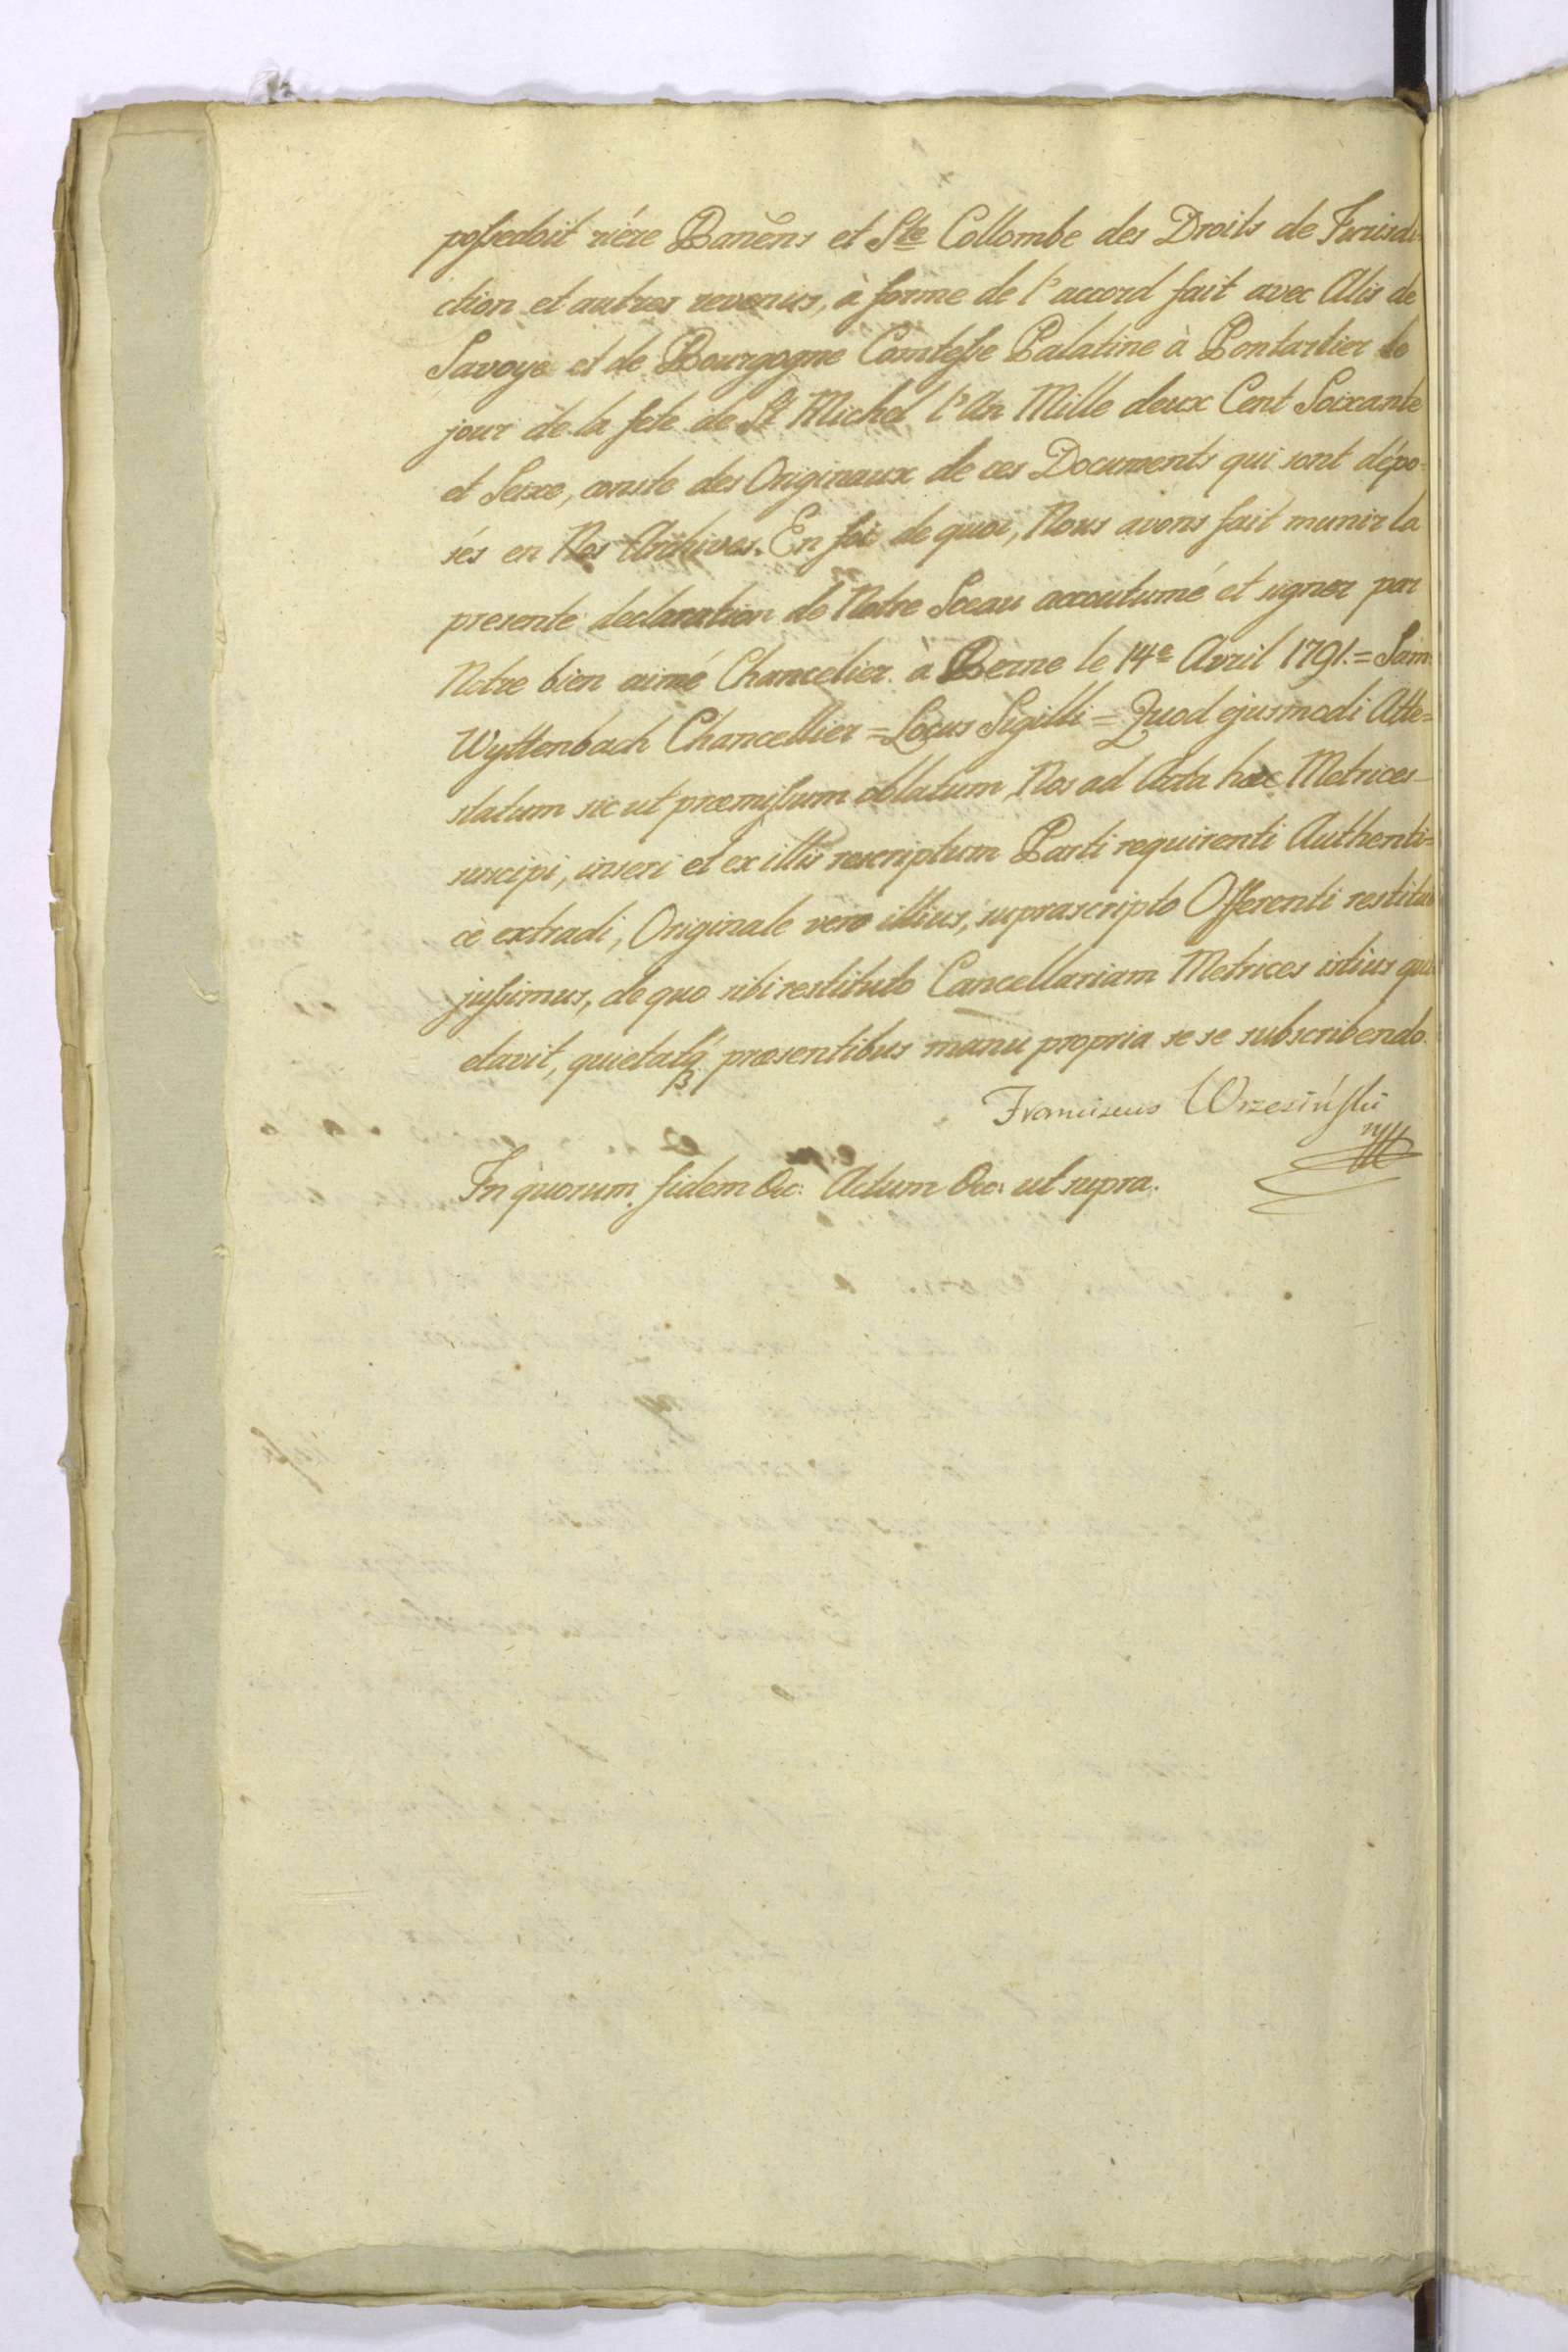 possedoit riére Banens et Ste Collombe des Droits de Jurisdi-
ction et autres revenus, à forme de l'accord fait avec Alis de
Savoye et de Bourgogne Comtesse Palatine à Pontarlier le
jour de la fete de St Michel l'An Mille deux Cent Soixante
et Seize, conste des Originaux de ces Documents qui sont dépo-
sés en Nos Archives. En foi de quoi, Nous avons fait munir la
presente declaration de Notre Sceau accoutumé et signer par
Notre bien aimé Chancelier. à Berne le 14e Avril 1791. = Sam:
Wyttenbach Chancellier = Locus Sigilli = Quod ejusmodi Atte=
statum sic ut præmissum oblatum, Nos ad Acta hæc Metrices
suscipi, inseri et ex illis rescriptum Parti requirenti Authenti=
cè extradi, Originale vero illius, suprascripto Offerenti restitui
jussimus, de quo sibi restituto Cancellariam Metrices istius qui-
etavit, quietatq́ præsentibus manu propria se se subscribendo.
Franciscus Wrzesiński
mp
In quorum fidem &c: Actum &c: ut supra.